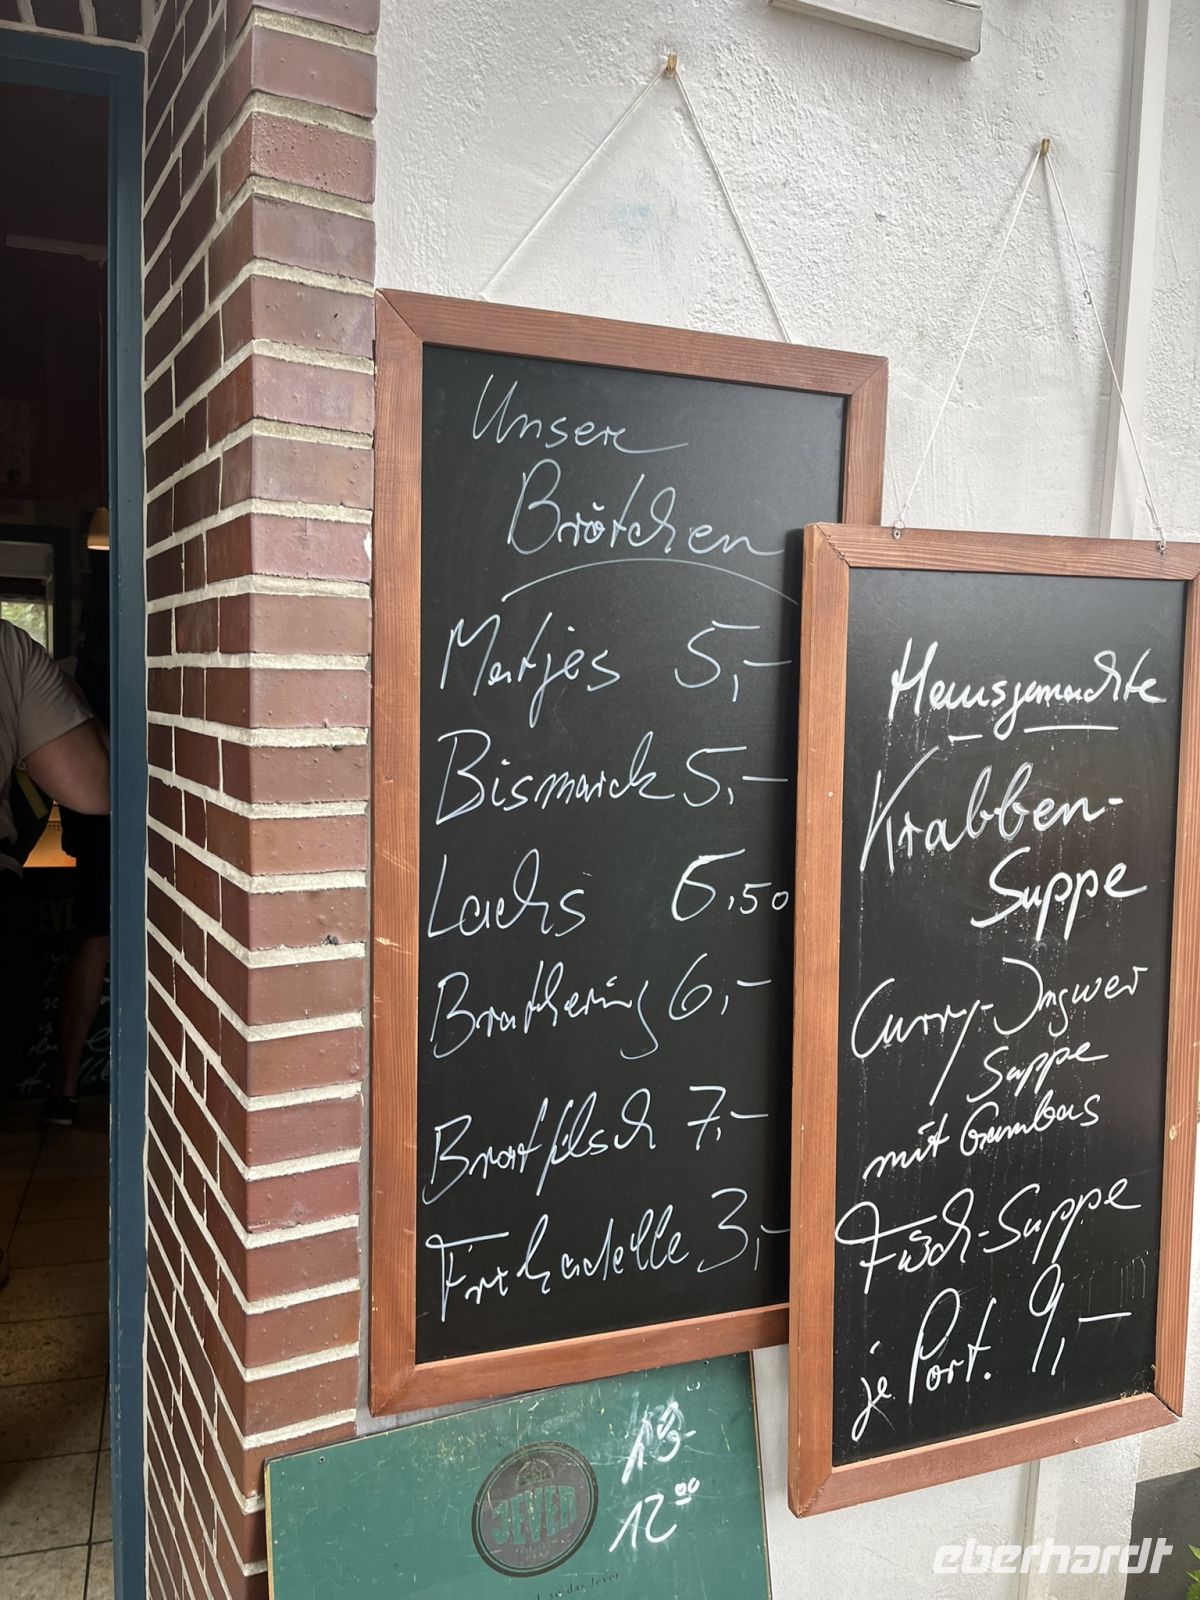 Unsere
Brötchen
Matjes 5,-
Bismarck 5,-
Lachs 6,50
Brathering 6,-
Bratfisch 7,-
Frikadelle 3,-
Hausgemachte
Krabben-
Suppe
Curry-Ingwer
Suppe
mit Gambas
Fisch-Suppe
je Port. 9,-
JEVER
12 00
eberhardt